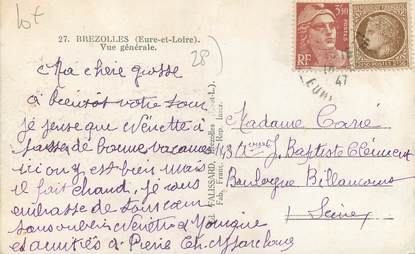 lot
27. BREZOLLES (Eure-et-Loire).
Vue générale.
28)
3F50
POSTES
RF
47
EURE
Ma chère gosse
à bientôt votre tour
je pense que
passe de bonnes vacances
ici on y est bien mais
il fait chaud, je vous
embrasse de tout cœur
sans oublier
et amitiés à Pierre
Edit. FALISSARD, Brezolles (E.-et-L.)
Madame Carié
143 J. Baptiste Clément
Boulogne Billancourt
Seine